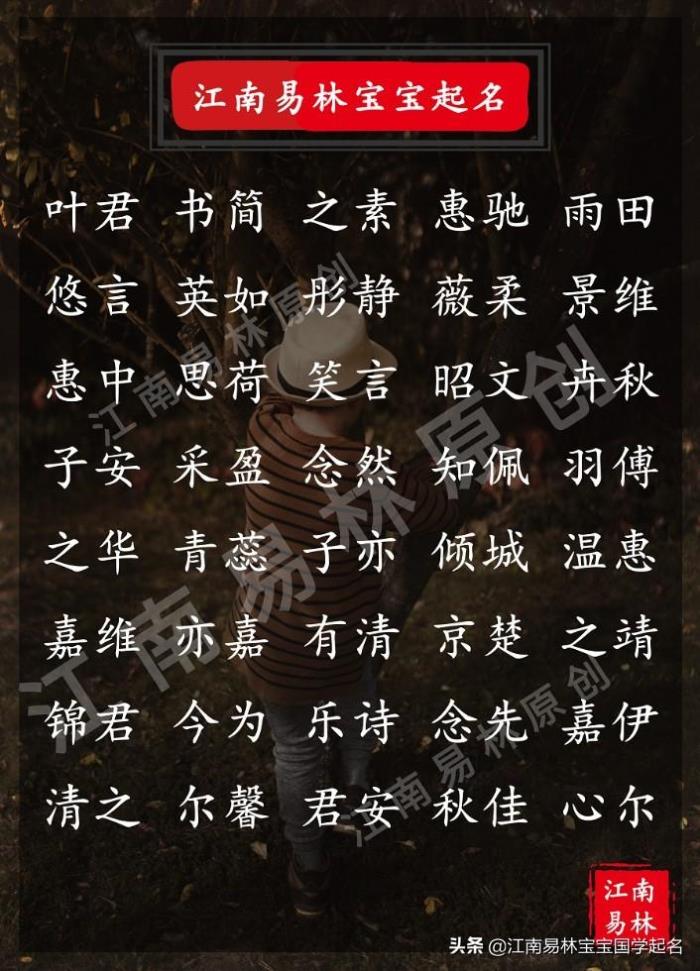 江南易林宝宝起名
叶君 书简 之素 惠驰 雨田
悠言 英如 彤静 薇柔 景维
惠中 思荷 笑言 昭文 卉秋
子安 采盈 念然 知佩 羽傅
之华 青蕊 子亦 倾城 温惠
嘉维 亦嘉 有清 京楚 之靖
锦君 今为 乐诗 念先 嘉伊
清之 尔馨 君安 秋佳 心尔
江南易林原创
江南易林原创
江南易林原创
江南
易林
头条 @江南易林宝宝国学起名